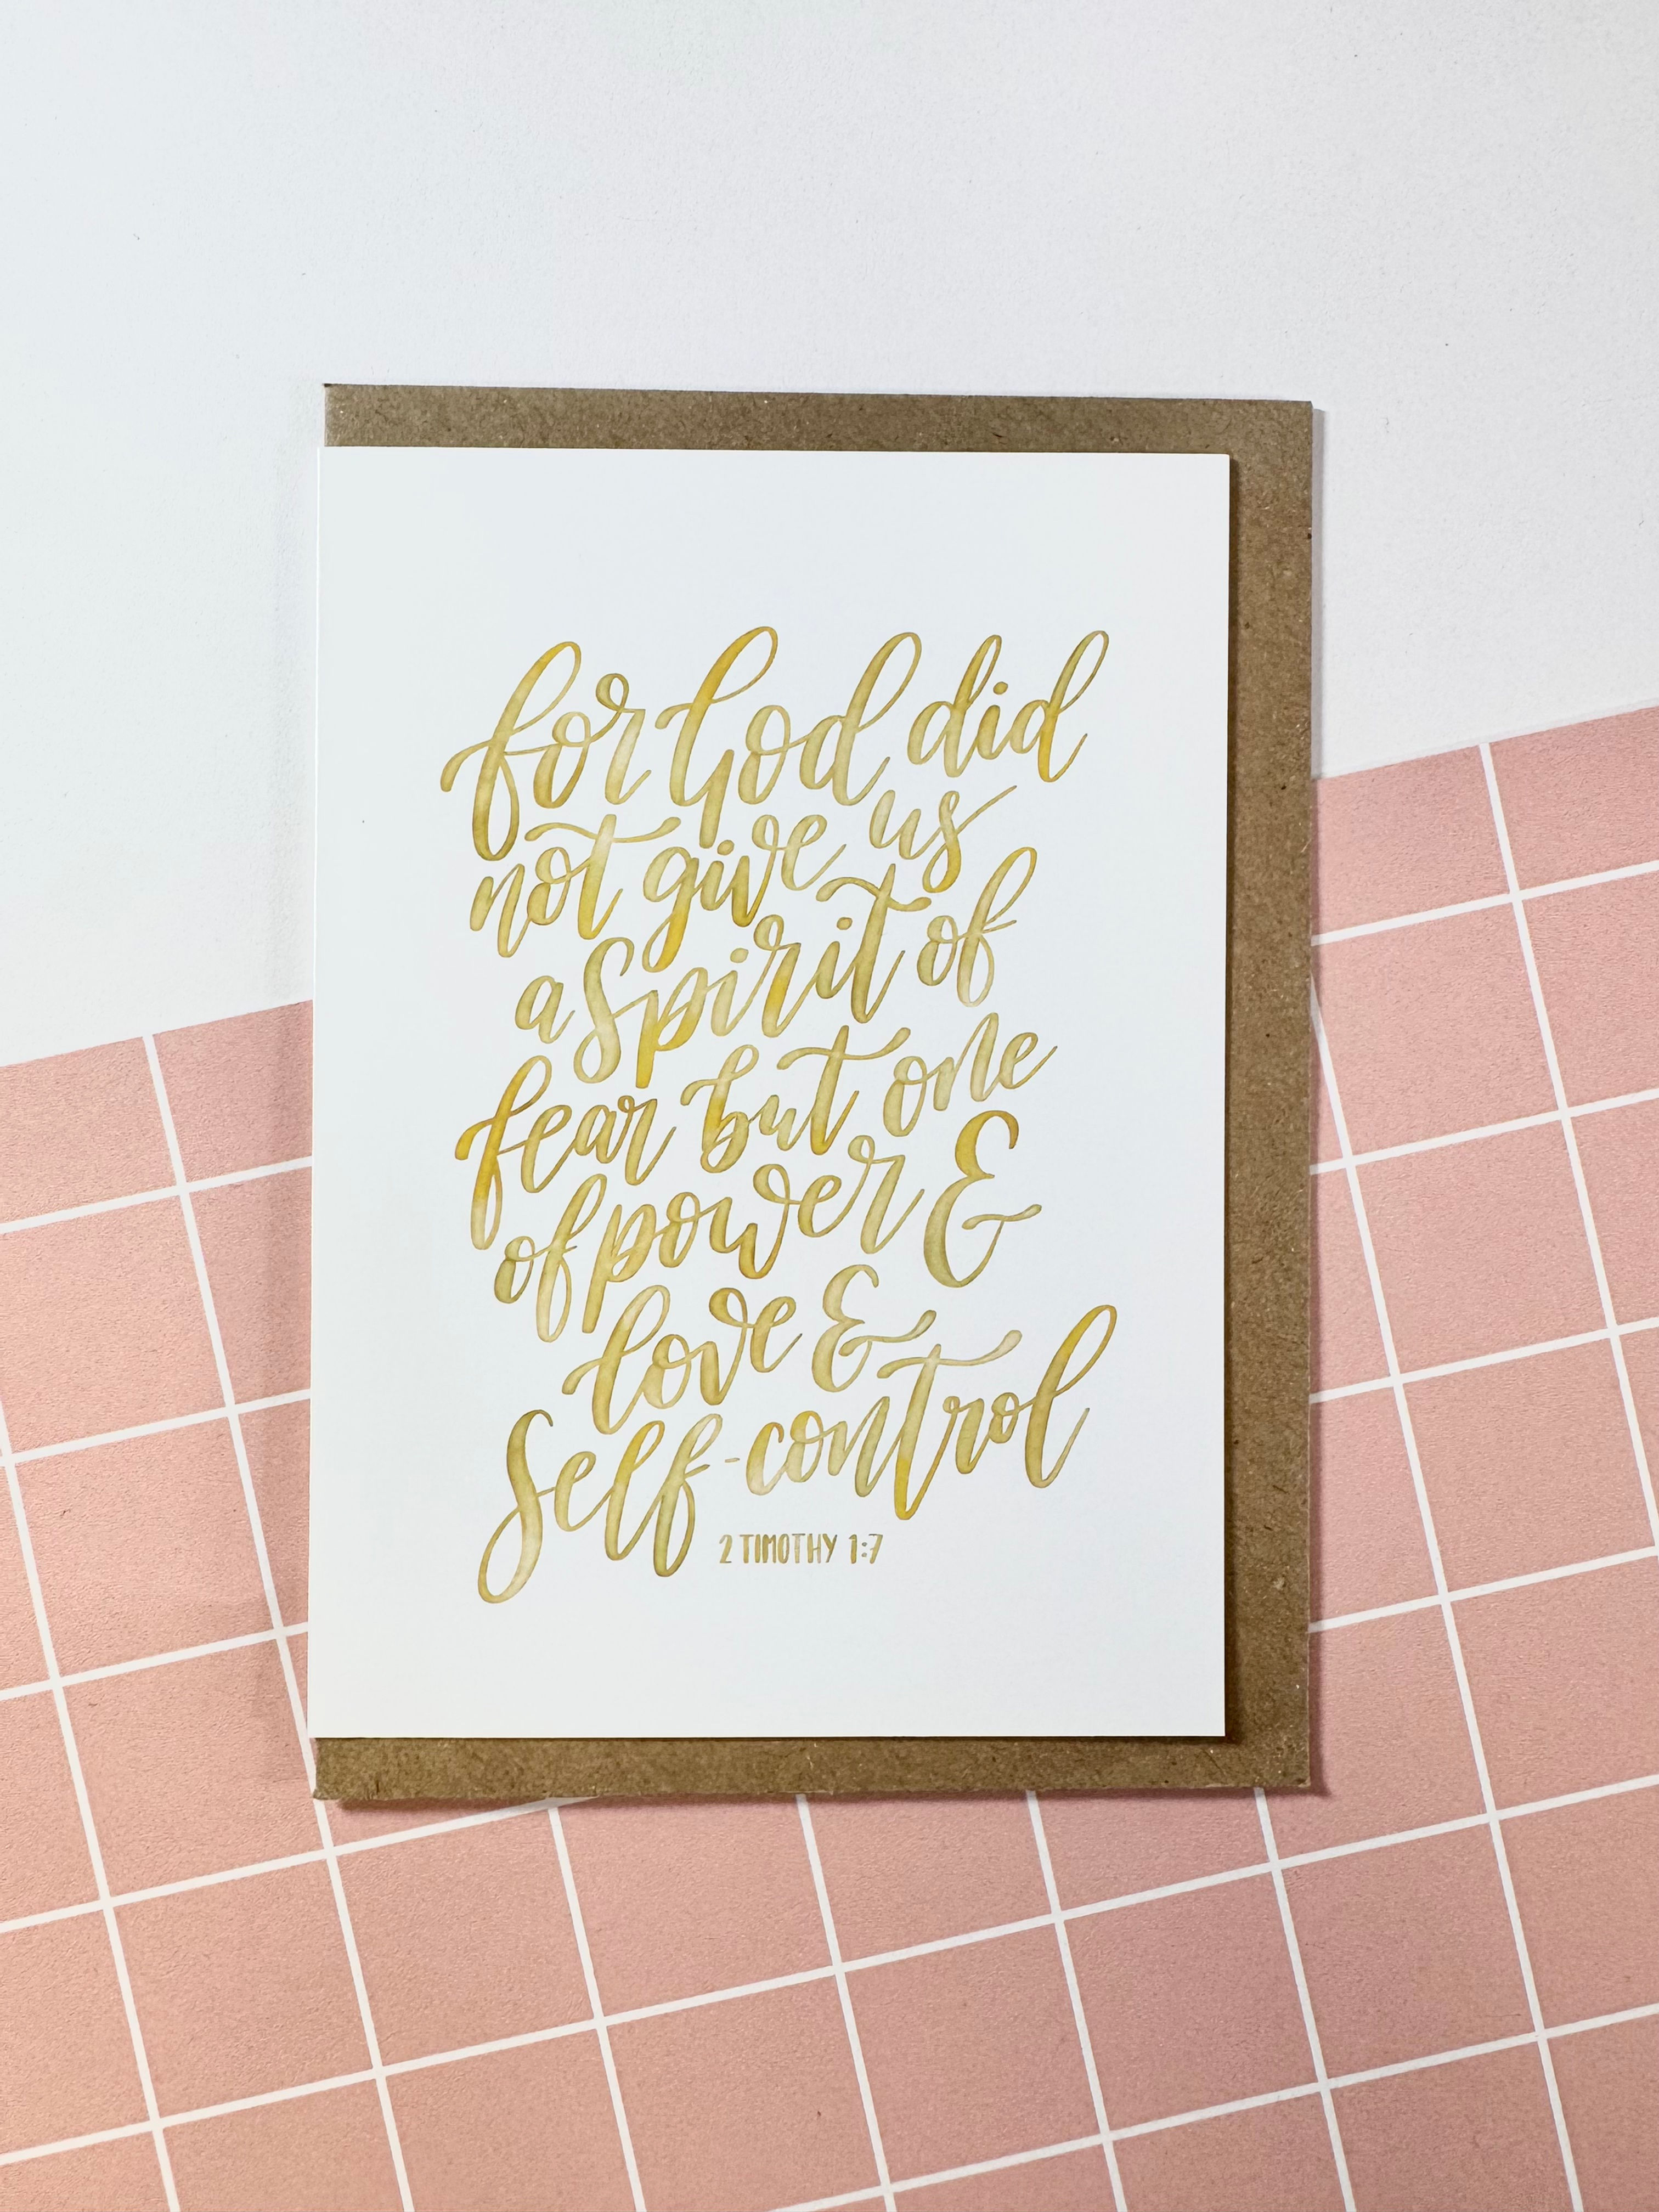 for God did
not give us
a Spirit of
fear but one
of power &
love &
Self-control
2 TIMOTHY 1:7